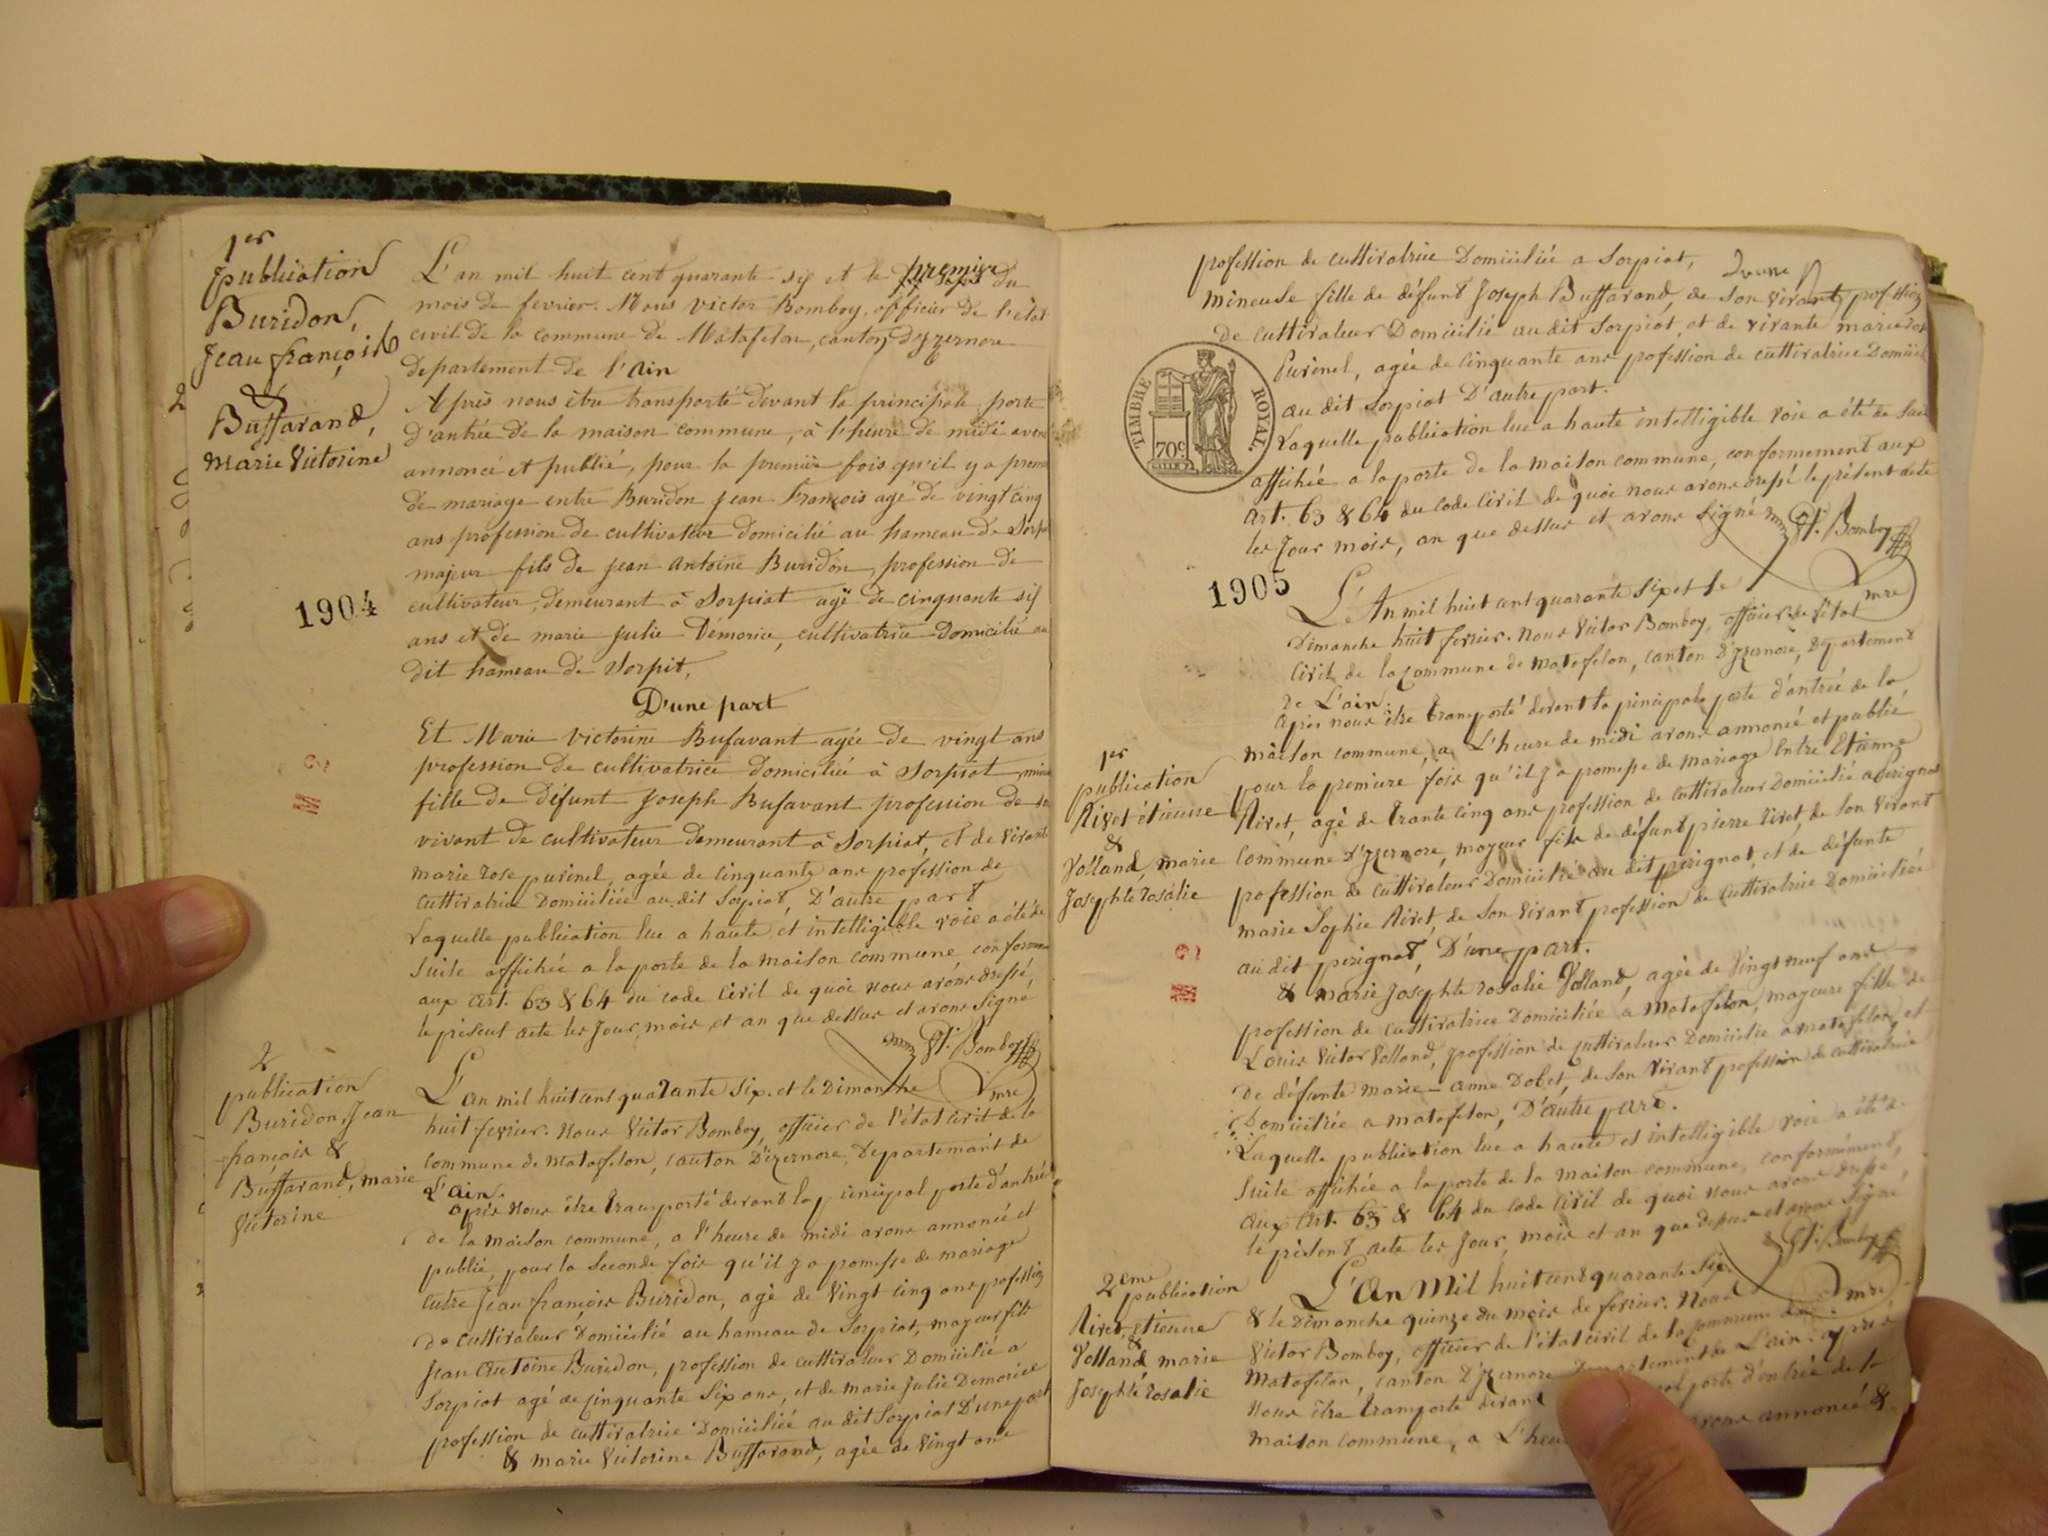 1er
publication
Buridon,
Jean françois
&
Buffavand,
Marie Victorine
L'an mil huit cent quarante six et le premier du
mois de fevrier. Nous Victor Bomboy, officier de l'état
civil de la commune de Matafelon, canton d'yzernore
departement de l'Ain
Après nous être transporté devant la principale porte
D'antrée de la maison commune, à l'heure de midi avons
annoncé et publié, pour la premiere fois qu'il y a
de mariage entre Buridon jean François agé de vingt cinq
ans profession de cultivateur domicilié au hameau de
majeur fils de jean antoine Buridon, profession de
cultivateur, demeurant à Sorpiat agé de cinquante six
ans et de marie julie Démorie, cultivatrice domicilié au
dit hameau de Sorpit,
D'une part
Et Marie Victorine Bufavant agée de vingt ans
profession de cultivatrice domiciliée à Sorpiat
fille de défunt Joseph Bufavant profession de
vivant de cultivateur demeurant à Sorpiat, et de vivante
marie rose purinel, agée de cinquante ans profession de
cultivatrice Domiciliée au dit Sorpiat, D'autre part
Laquelle publication lue a haute et intelligible voie a été de
suite affichée a la porte de la maison commune
aux art. 63 & 64 du code civil de quoi nous avons dressé,
le présent acte les jour, mois et an que dessus et avons signé
Vt. Bomboy
mre
1904
2
publication
Buridon, Jean
françois &
Buffavand, marie
Victorine
L'an mil huit cent quarante six et le Dimanche
huit fevrier. Nous Victor Bomboy, officier de l'état civil de la
commune de matafelon, canton D'izernore, Departement de
L'ain.
après nous être transporté devant la principal porte d'antrée
de la maison commune, a l'heure de midi avons annoncé et
publié, pour la seconde fois qu'il y a promesse de mariage
entre Jean françois Buridon, agé de vingt cinq ans profession
de cultivateur Domicilié au hameau de Sorpiat, mayeur fils
Jean Antoine Buridon, profession de cultivateur Domicilié a
Sorpiat agé de cinquante six ans, et de marie Julie Demorie
profession de cultivatrice Domiciliée au dit Sorpiat D'une part
& marie Victorine Buffavand, agée de vingt ans
profession de cultivatrice Domiciliée a Sorpiat,
mineuse fille de défunt Joseph Buffavand, de son vivant profession
de cultivateur Domicilié au dit Sorpiat, et de vivante marie
Purinel, agée de cinquante ans profession de cultivatrice
au dit Sorpiat D'autre part.
TIMBRE ROYAL
70c
Laquelle publication lue a haute intelligible voie a été de
affichée a la porte de la maison commune, conformement aux
art. 63 & 64 du code civil de quoi nous avons dressé le présent acte
les jour mois, an que dessus et avons signé
Vt. Bomboy
mre
1905
L'An mil huit cent quarante six et le
Dimanche huit fevrier. Nous Victor Bomboy, officier de l'état
civil de la commune de matafelon, canton D'yzernore, Departement
de L'ain.
après nous être transporté devant la principale porte d'antrée de la
maison commune, a L'heure de midi avons annoncé et publié
pour la premiere fois qu'il y a promesse de mariage Entre Etienne
Rivet, agé de trante cinq ans profession de cultivateur Domicilié a perignat
commune D'yzernore, mayeur fils de défunt pierre rivet, de son vivant
profession de cultivateur Domicilié au dit perignat, et de défunte
marie Sophie Rivet, de son vivant profession de cultivatrice Domiciliée
au dit perignat, D'une part.
1er
publication
Rivet étienne
&
Volland, marie
Josephte rosalie
& marie Josephte rosalie Volland, agée de vingt neuf ans
profession de cultivatrice Domiciliée a Matafelon, mayeure fille de
Louis Victor Volland, profession de cultivateur Domicilié a matafelon, et
de défunte marie-anne Dobet, de son vivant profession de cultivatrice
Domiciliée a matafelon, D'autre part.
Laquelle publication lue a haute et intelligible voie a été de
suite affichée a la porte de la maison commune, conformément,
aux art. 63 & 64 du code civil de quoi nous avons dressé,
le présent acte les jour, mois et an que dessus et avons signé
Vt. Bomboy
mre
2eme
publication
Rivet, étienne
&
Volland marie
Josephte rosalie
L'An Mil huit cent quarante six
& le Dimanche quinze du mois de fevrier. Nous
Victor Bomboy, officier de l'état civil de la commune de
Matafelon, canton D'yzernore Departement de L'ain. après
nous être transporté devant porte d'entrée de la
maison commune, a L'heu avons annoncé &